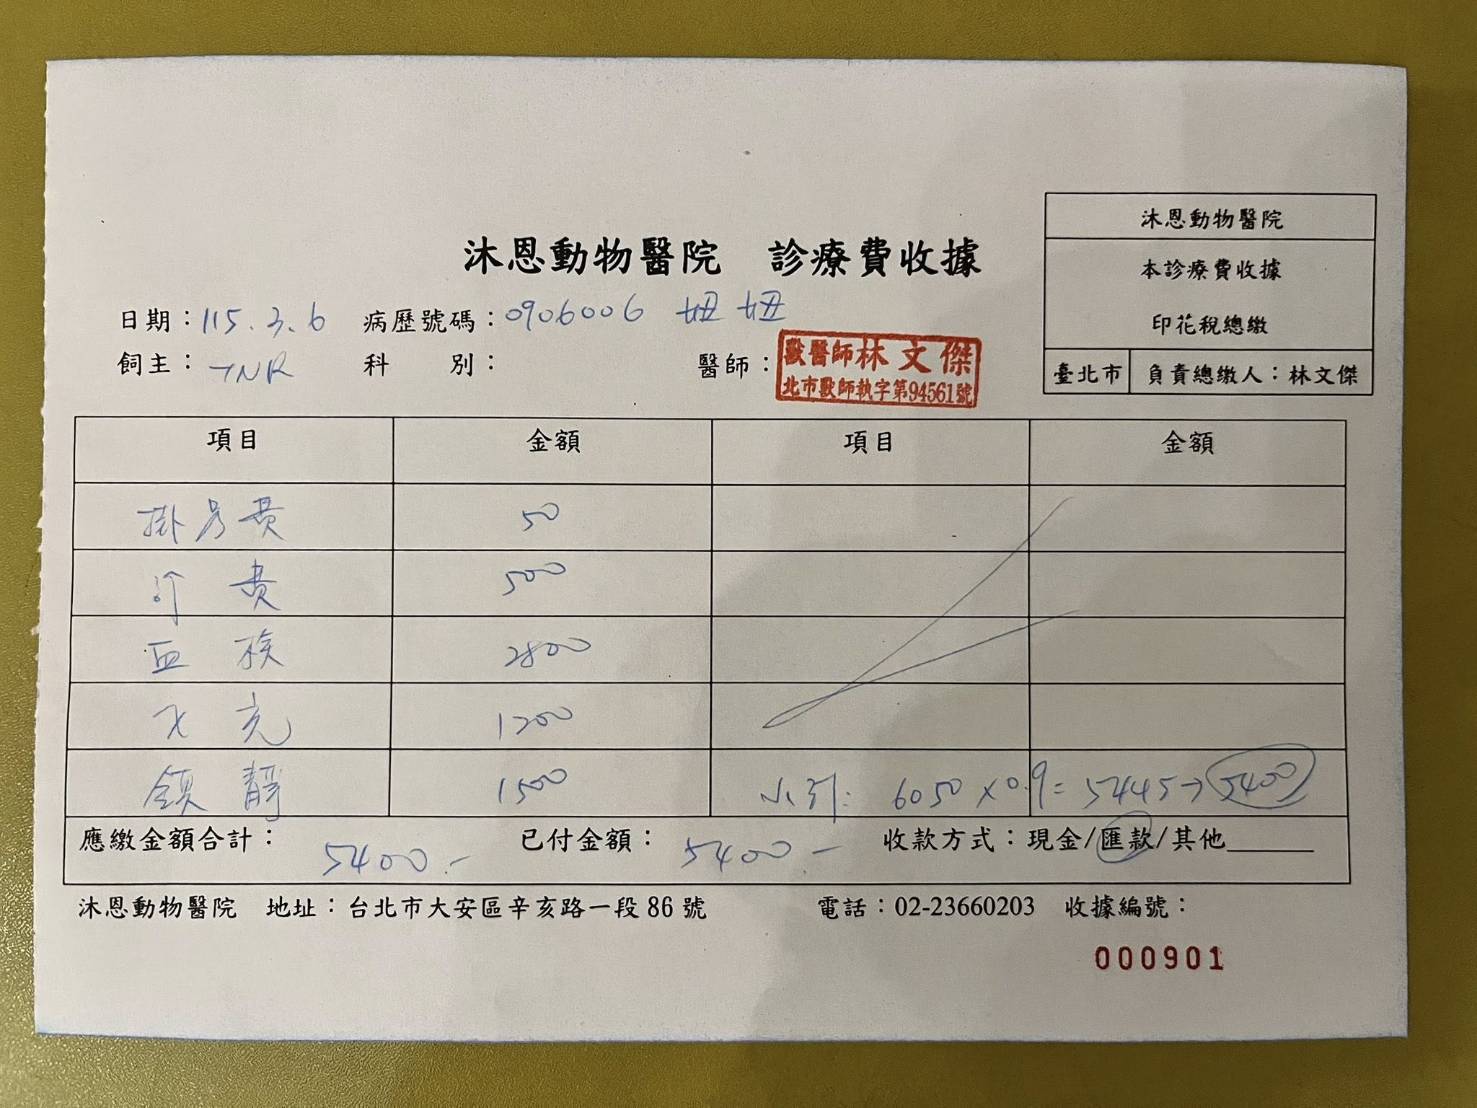 沐恩動物醫院
本診療費收據
印花稅總繳
臺北市 負責總繳人：林文傑
沐恩動物醫院 診療費收據
日期：115.3.6 病歷號碼：0906006 妞妞
飼主：TNR 科 別： 醫師：
獸醫師林文傑
北市獸師執字第94561號
項目 金額 項目 金額
掛号費 50
診費 500
血檢 2800
X光 1200
鎮靜 1500 小計: 6050 x 0.9 = 5445 → 5400
應繳金額合計： 5400 - 已付金額： 5400 - 收款方式：現金/匯款/其他
沐恩動物醫院 地址：台北市大安區辛亥路一段 86 號 電話：02-23660203 收據編號：
000901